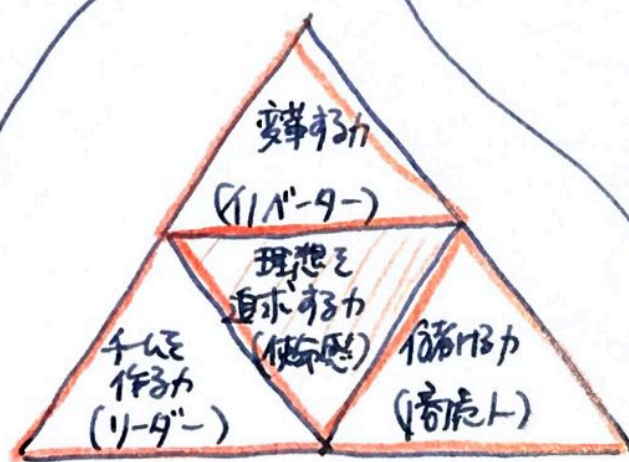 変革する力
(イノベーター)
理想を
追求する力
(使命感)
チームを
作る力
(リーダー)
儲ける力
(商売人)